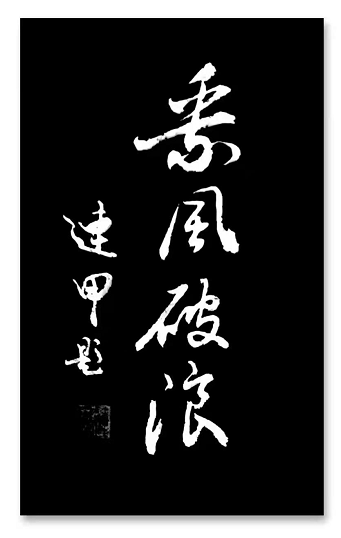 乘風破浪
連甲題